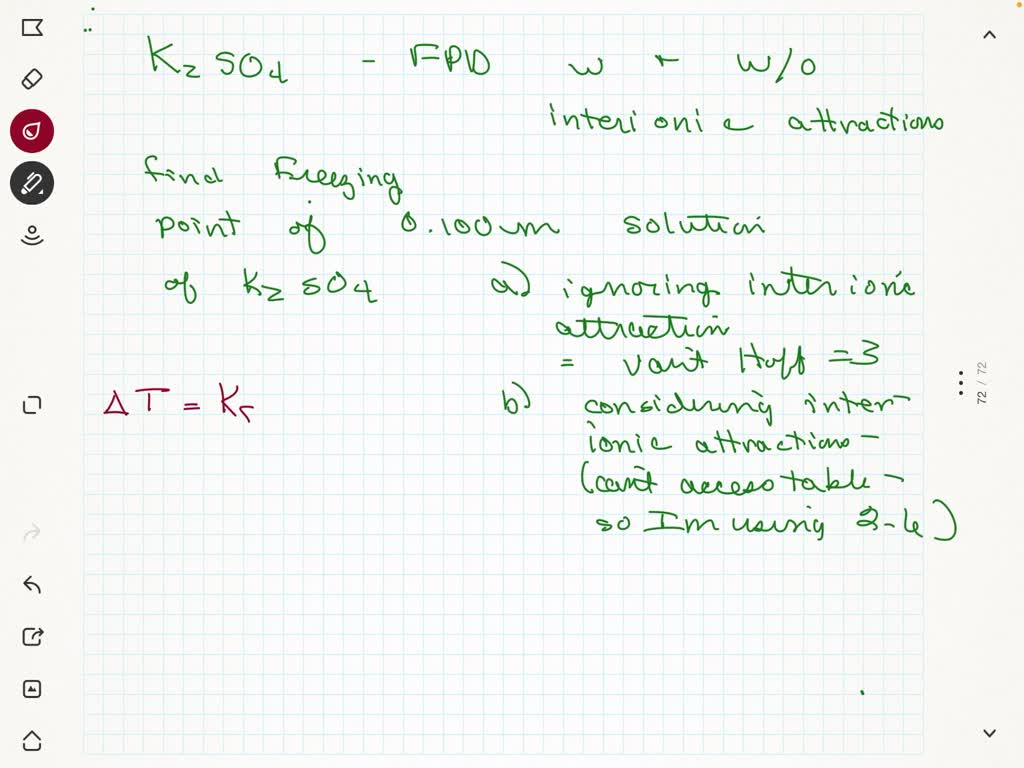 K₂SO₄ - FPD w + w/o
interionic attractions
find Freezing
point of 0.100 m solution
of K₂SO₄
a) ignoring interionic
attraction
= van't Hoff = 3
b) considering inter-
ionic attractions -
(can't access table -
so Im using 2.6)
ΔT = Kf
72 / 72